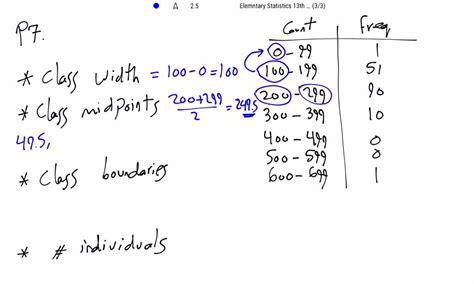 2.5 Elemntary Statistics 13th ... (3/3)
P7.
Count freq
0 - 99 1
* Class width = 100-0=100 100 - 199 51
* Class midpoints 200+299/2 = 249.5 200 - 299 90
300 - 399 10
49.5, 400 - 499 0
500 - 599 0
* Class boundaries 600 - 699 1
* # individuals